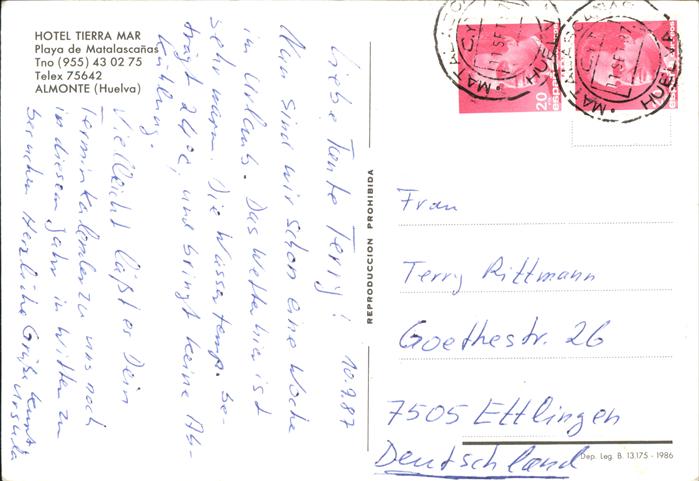 HOTEL TIERRA MAR
Playa de Matalascañas
Tno (955) 43 02 75
Telex 75642
ALMONTE (Huelva)
10.9.87
Liebe Tante Terry!
Nun sind wir schon eine Woche
im Urlaub. Das Wetter hier ist
sehr warm. Die Wassertemp. be-
trägt 24°C, und bringt keine Ab-
kühlung.
Vielleicht läßt es Dein
Terminkalender zu uns noch
in diesem Jahr in Witten zu
besuchen. Herzliche Grüße
Ursula
REPRODUCCION PROHIBIDA
20
españa
españa
MATALASCAÑAS
HUELVA
11 SET. 87
HUELVA
Frau
Terry Rittmann
Goethestr. 26
7505 Ettlingen
Deutschland
Dep. Leg. B. 13.175 - 1986